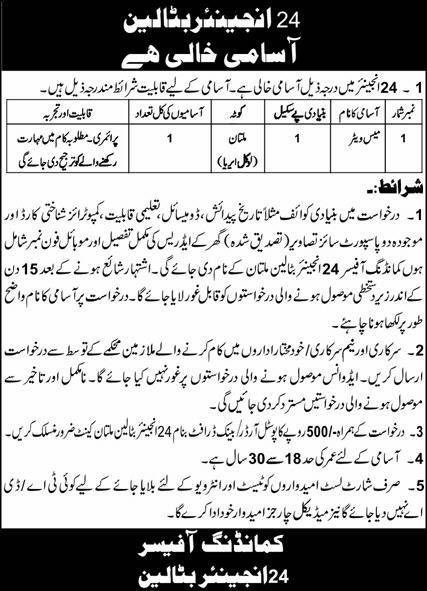 24 انجینئر بٹالین
آسامی خالی ہے
1 - 24 انجینئر میں درجہ ذیل آسامی خالی ہے۔ آسامی کے لیے قابلیت شرائط مندرجہ ذیل ہیں۔
نمبر شمار آسامی کا نام بنیادی پے سکیل کوٹہ آسامیوں کی کل تعداد قابلیت اور تجربہ
1 میس ویٹر 1 ملتان 1 پرائمری۔ مطلوبہ کام میں مہارت
(لوکل ایریا) رکھنے والے کو ترجیح دی جائے گی
شرائط:۔
1 - درخواست میں بنیادی کوائف مثلاً تاریخ پیدائش، ڈومیسائل، تعلیمی قابلیت، کمپوٹرائز شناختی کارڈ اور
موجودہ دو پاسپورٹ سائز تصاویر (تصدیق شدہ) گھر کے ایڈریس کی مکمل تفصیل اور موبائل فون نمبر شامل
ہوں کمانڈنگ آفیسر 24 انجینئر بٹالین ملتان کے نام دی جائے گی۔ اشتہار شائع ہونے کے بعد 15 دن
کے اندر زیر دستخطی موصول ہونے والی درخواستوں کو قابل غور لایا جائے گا۔ درخواست پر آسامی کا نام واضح
طور پر لکھا ہونا چاہئے۔
2 - سرکاری اور نیم سرکاری/خودمختار اداروں میں کام کرنے والے ملازمین محکمے کے توسط سے درخواست
ارسال کریں۔ ایڈوانس موصول ہونے والی درخواستوں پر غور نہیں کیا جائے گا۔ نامکمل اور تاخیر سے
موصول ہونے والی درخواستیں مسترد کر دی جائیں گی۔
3 - درخواست کے ہمراہ -/500 روپے کا پوسٹل آرڈر/بینک ڈرافٹ بنام 24 انجینئر بٹالین ملتان کینٹ ضرور منسلک کریں۔
4 - آسامی کے لئے عمر کی حد 18 سے 30 سال ہے۔
5 - صرف شارٹ لسٹ امیدواروں کو ٹیسٹ اور انٹرویو کے لئے بلایا جائے گا جس کے لیے کوئی ٹی اے/ڈی
اے نہیں دیا جائے گا نیز میڈیکل چارجز امیدوار خود ادا کرے گا۔
کمانڈنگ آفیسر
24 انجینئر بٹالین